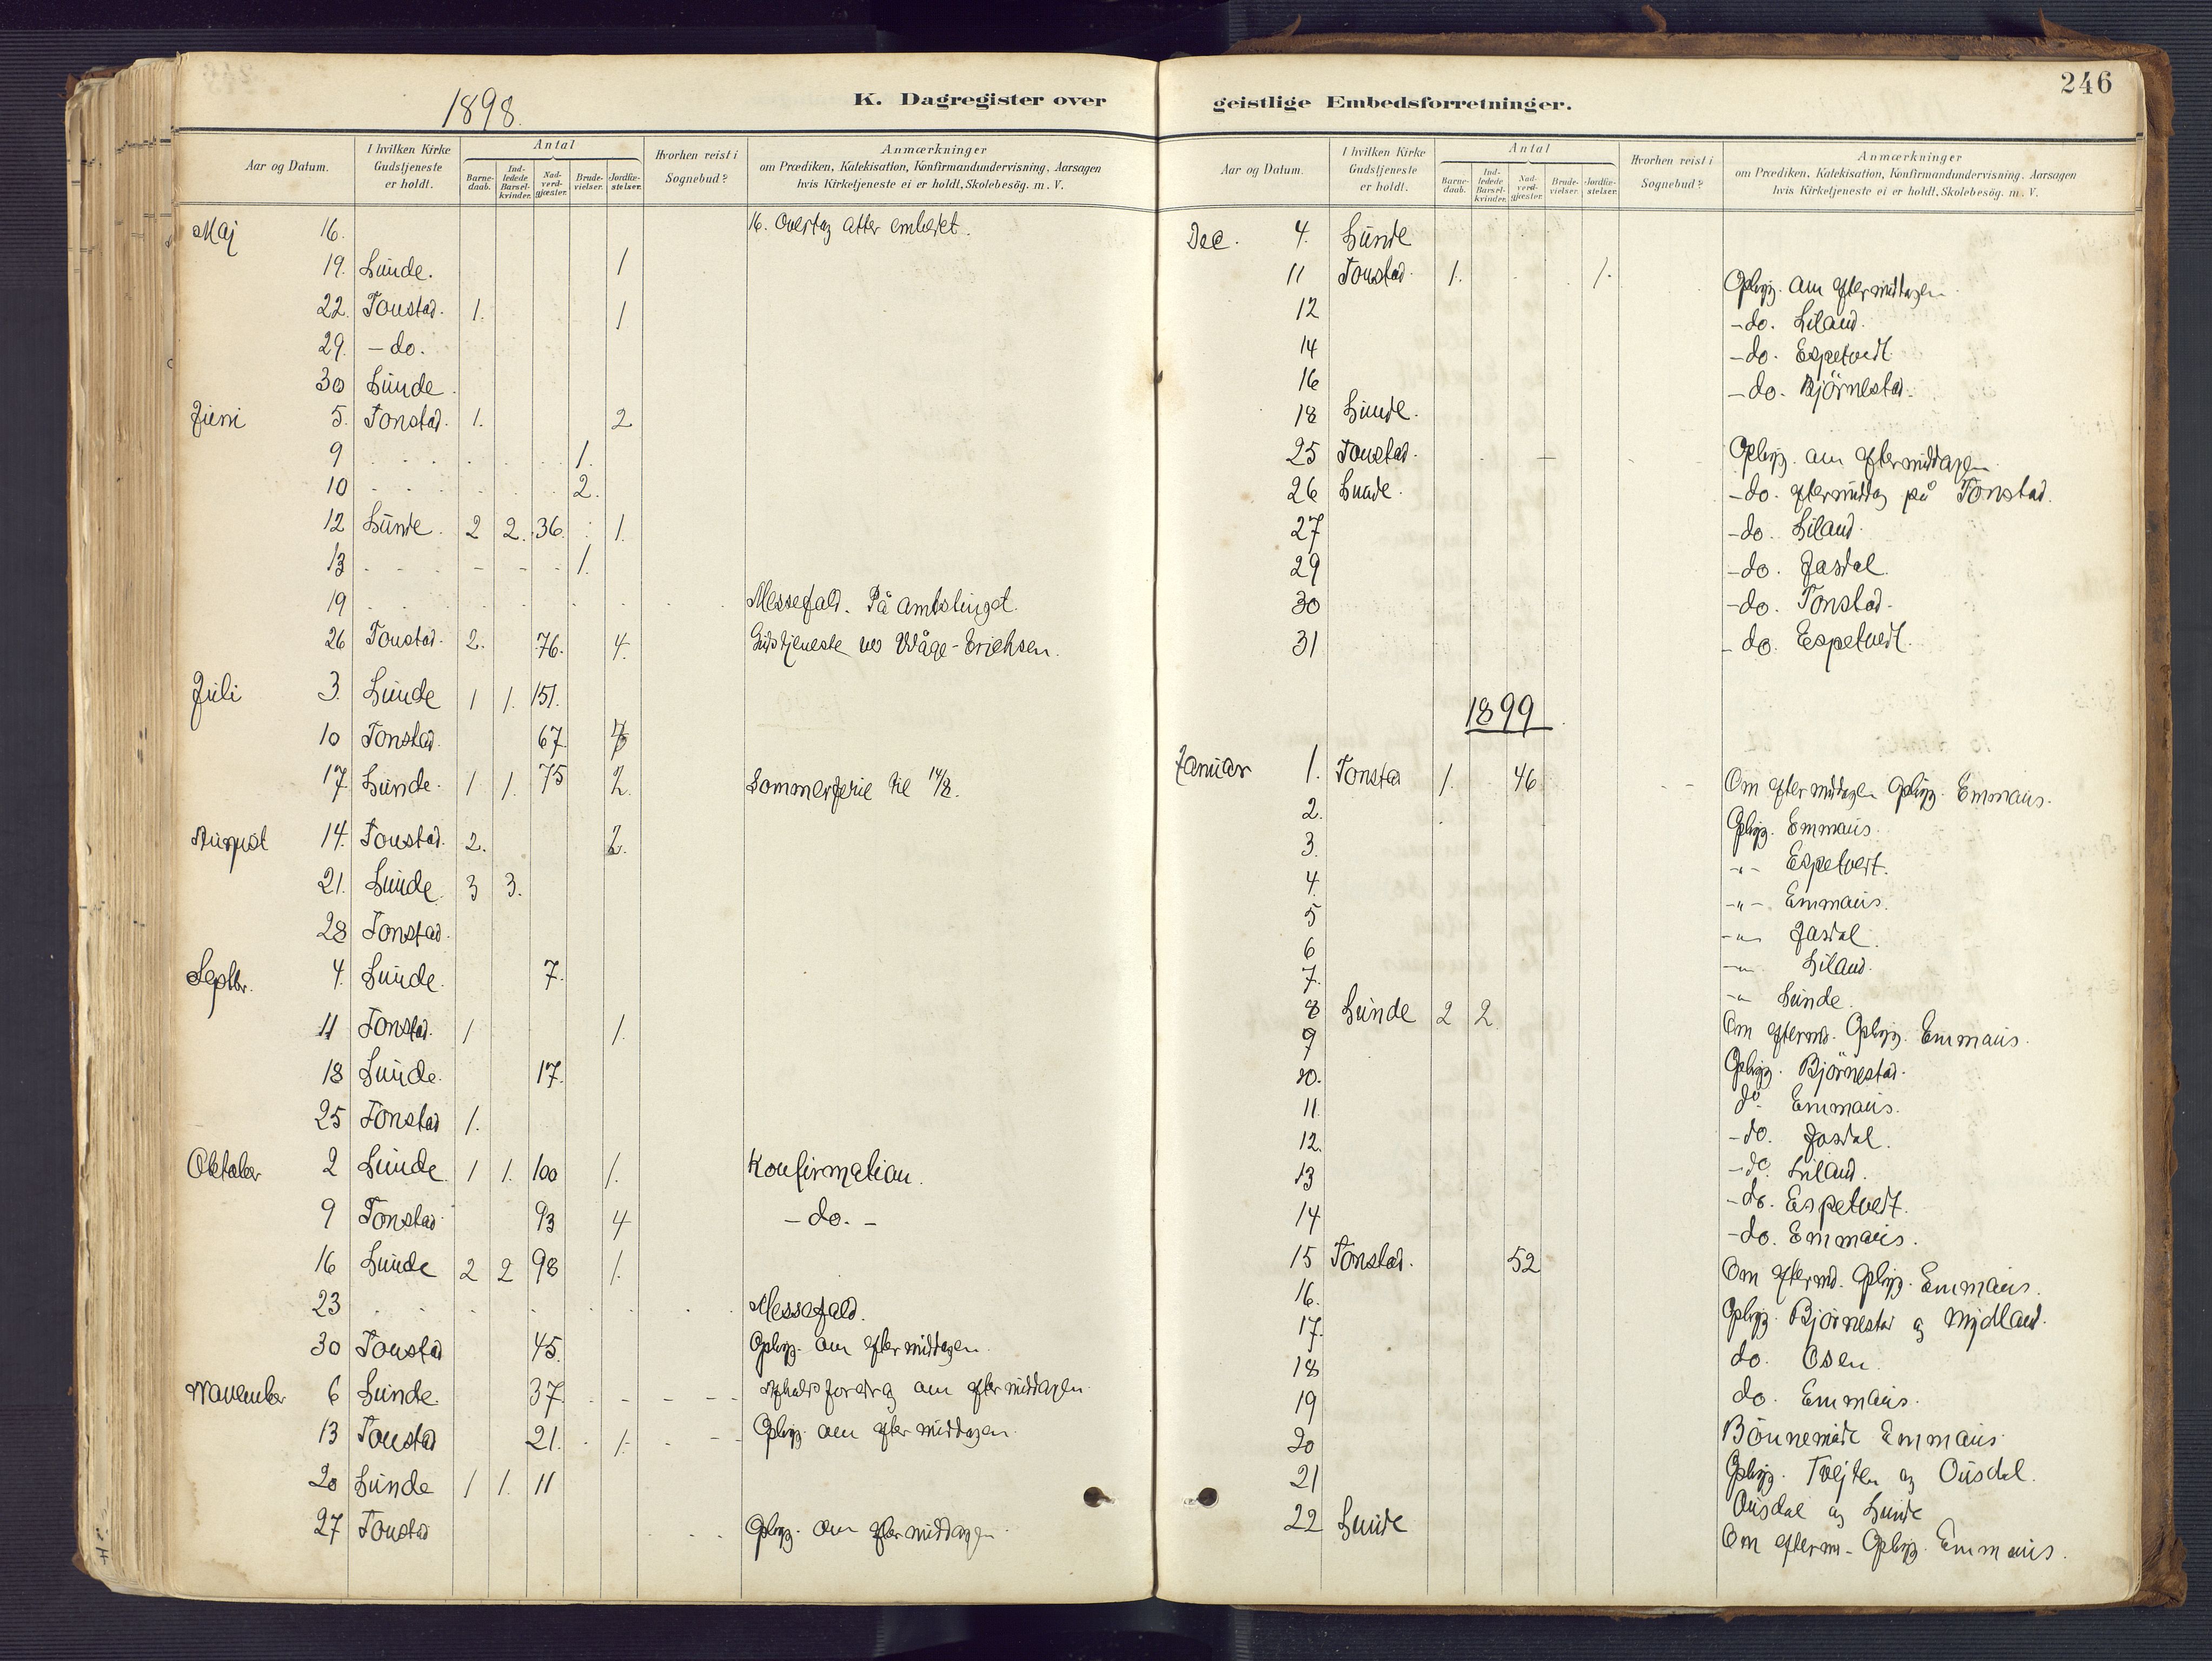 1898.
K. Dagregister over
Aar og Datum.
I hvilken Kirke Gudstjeneste er holdt.
Antal
Barnedaab.
Indledede Barselkvinder.
Nadverdgjæster.
Brudevielser.
Jordfæstelser.
Hvorhen reist i Sognebud?
Anmærkninger
om Prædiken, Katekisation, Konfirmandundervisning, Aarsagen
hvis Kirketjeneste ei er holdt, Skolebesög. m. V.
Maj 16. 16. Overtog atter embedet.
19. Lunde. 1
22. Tonstad. 1. 1
29. - do.
30 Lunde.
Juni 5. Tonstad. 1. 2
9 1.
10 2.
12 Lunde. 2 2. 36. 1.
13 1.
19 Messefald. På amtstinget.
26 Tonstad. 2. 76. 4. Gudstjeneste ved Våge-Erichsen.
Juli 3. Lunde 1 1. 151.
10 Tonstad. 67.
17. Lunde. 1 1. 75 2. Sommerferie til 14/8.
August 14. Tonstad. 2. 2.
21. Lunde. 3 3.
28 Tonstad.
Septbr. 4. Lunde. 7.
11 Tonstad. 1 1.
18 Lunde. 17.
25 Tonstad 1.
Oktober 2 Lunde. 1 1. 100 1. Konfirmation.
9 Tonstad 93 4 - do. -
16 Lunde 2 2 98 1.
23 Messefald.
30 Tonstad 45. Opbyg. om eftermiddagen.
November 6 Lunde. 37. Afholdsforedrag om eftermiddagen.
13 Tonstad 21. 1. Opbyg. om eftermiddagen.
20 Lunde 1 1. 11
27 Tonstad Opbyg. om eftermiddagen.
246
geistlige Embedsforretninger.
Aar og Datum.
I hvilken Kirke Gudstjeneste er holdt.
Antal
Barnedaab.
Indledede Barselkvinder.
Nadverdgjæster.
Brudevielser.
Jordfæstelser.
Hvorhen reist i Sognebud?
Anmærkninger
om Prædiken, Katekisation, Konfirmandundervisning, Aarsagen
hvis Kirketjeneste ei er holdt, Skolebesög. m. V.
Dec. 4. Lunde
11 Tonstad. 1. 1. Opbyg. om eftermiddagen
12 - do. Liland.
14 - do. Espetvedt
16 - do. Björnestad.
18 Lunde.
25 Tonstad. Opbyg. om eftermiddagen
26 Lunde. - do. eftermiddag på Tonstad.
27 - do. Liland.
29 - do. Josdal.
30 - do. Tonstad.
31 - do. Espetvedt.
1899
Januar 1. Tonstad 1. 46 Om eftermiddagen Opbyg. Emmaus.
2. Opbyg. Emmaus.
3. -"- Espetvedt.
4. -"- Emmaus.
5 -"- Josdal.
6 -"- Liland.
7. -"- Lunde.
8 Lunde 2 2. Om efterm. Opbyg. Emmaus.
9 Opbyg. Björnestad.
10. do. Emmaus.
11. - do. Josdal.
12. - do. Liland.
13 - do. Espetvedt.
14 - do. Emmaus.
15 Tonstad. 52 Om efterm. Opbyg. Emmaus.
16. Opbyg. Björnestad og Mydland.
17. do. Osen.
18 do. Emmaus.
19 Bönnemöde Emmaus
20 Opbyg. Tvejten og Ousdal.
21 Ousdal og Lunde
22 Lunde Om efterm. Opbyg. Emmaus.